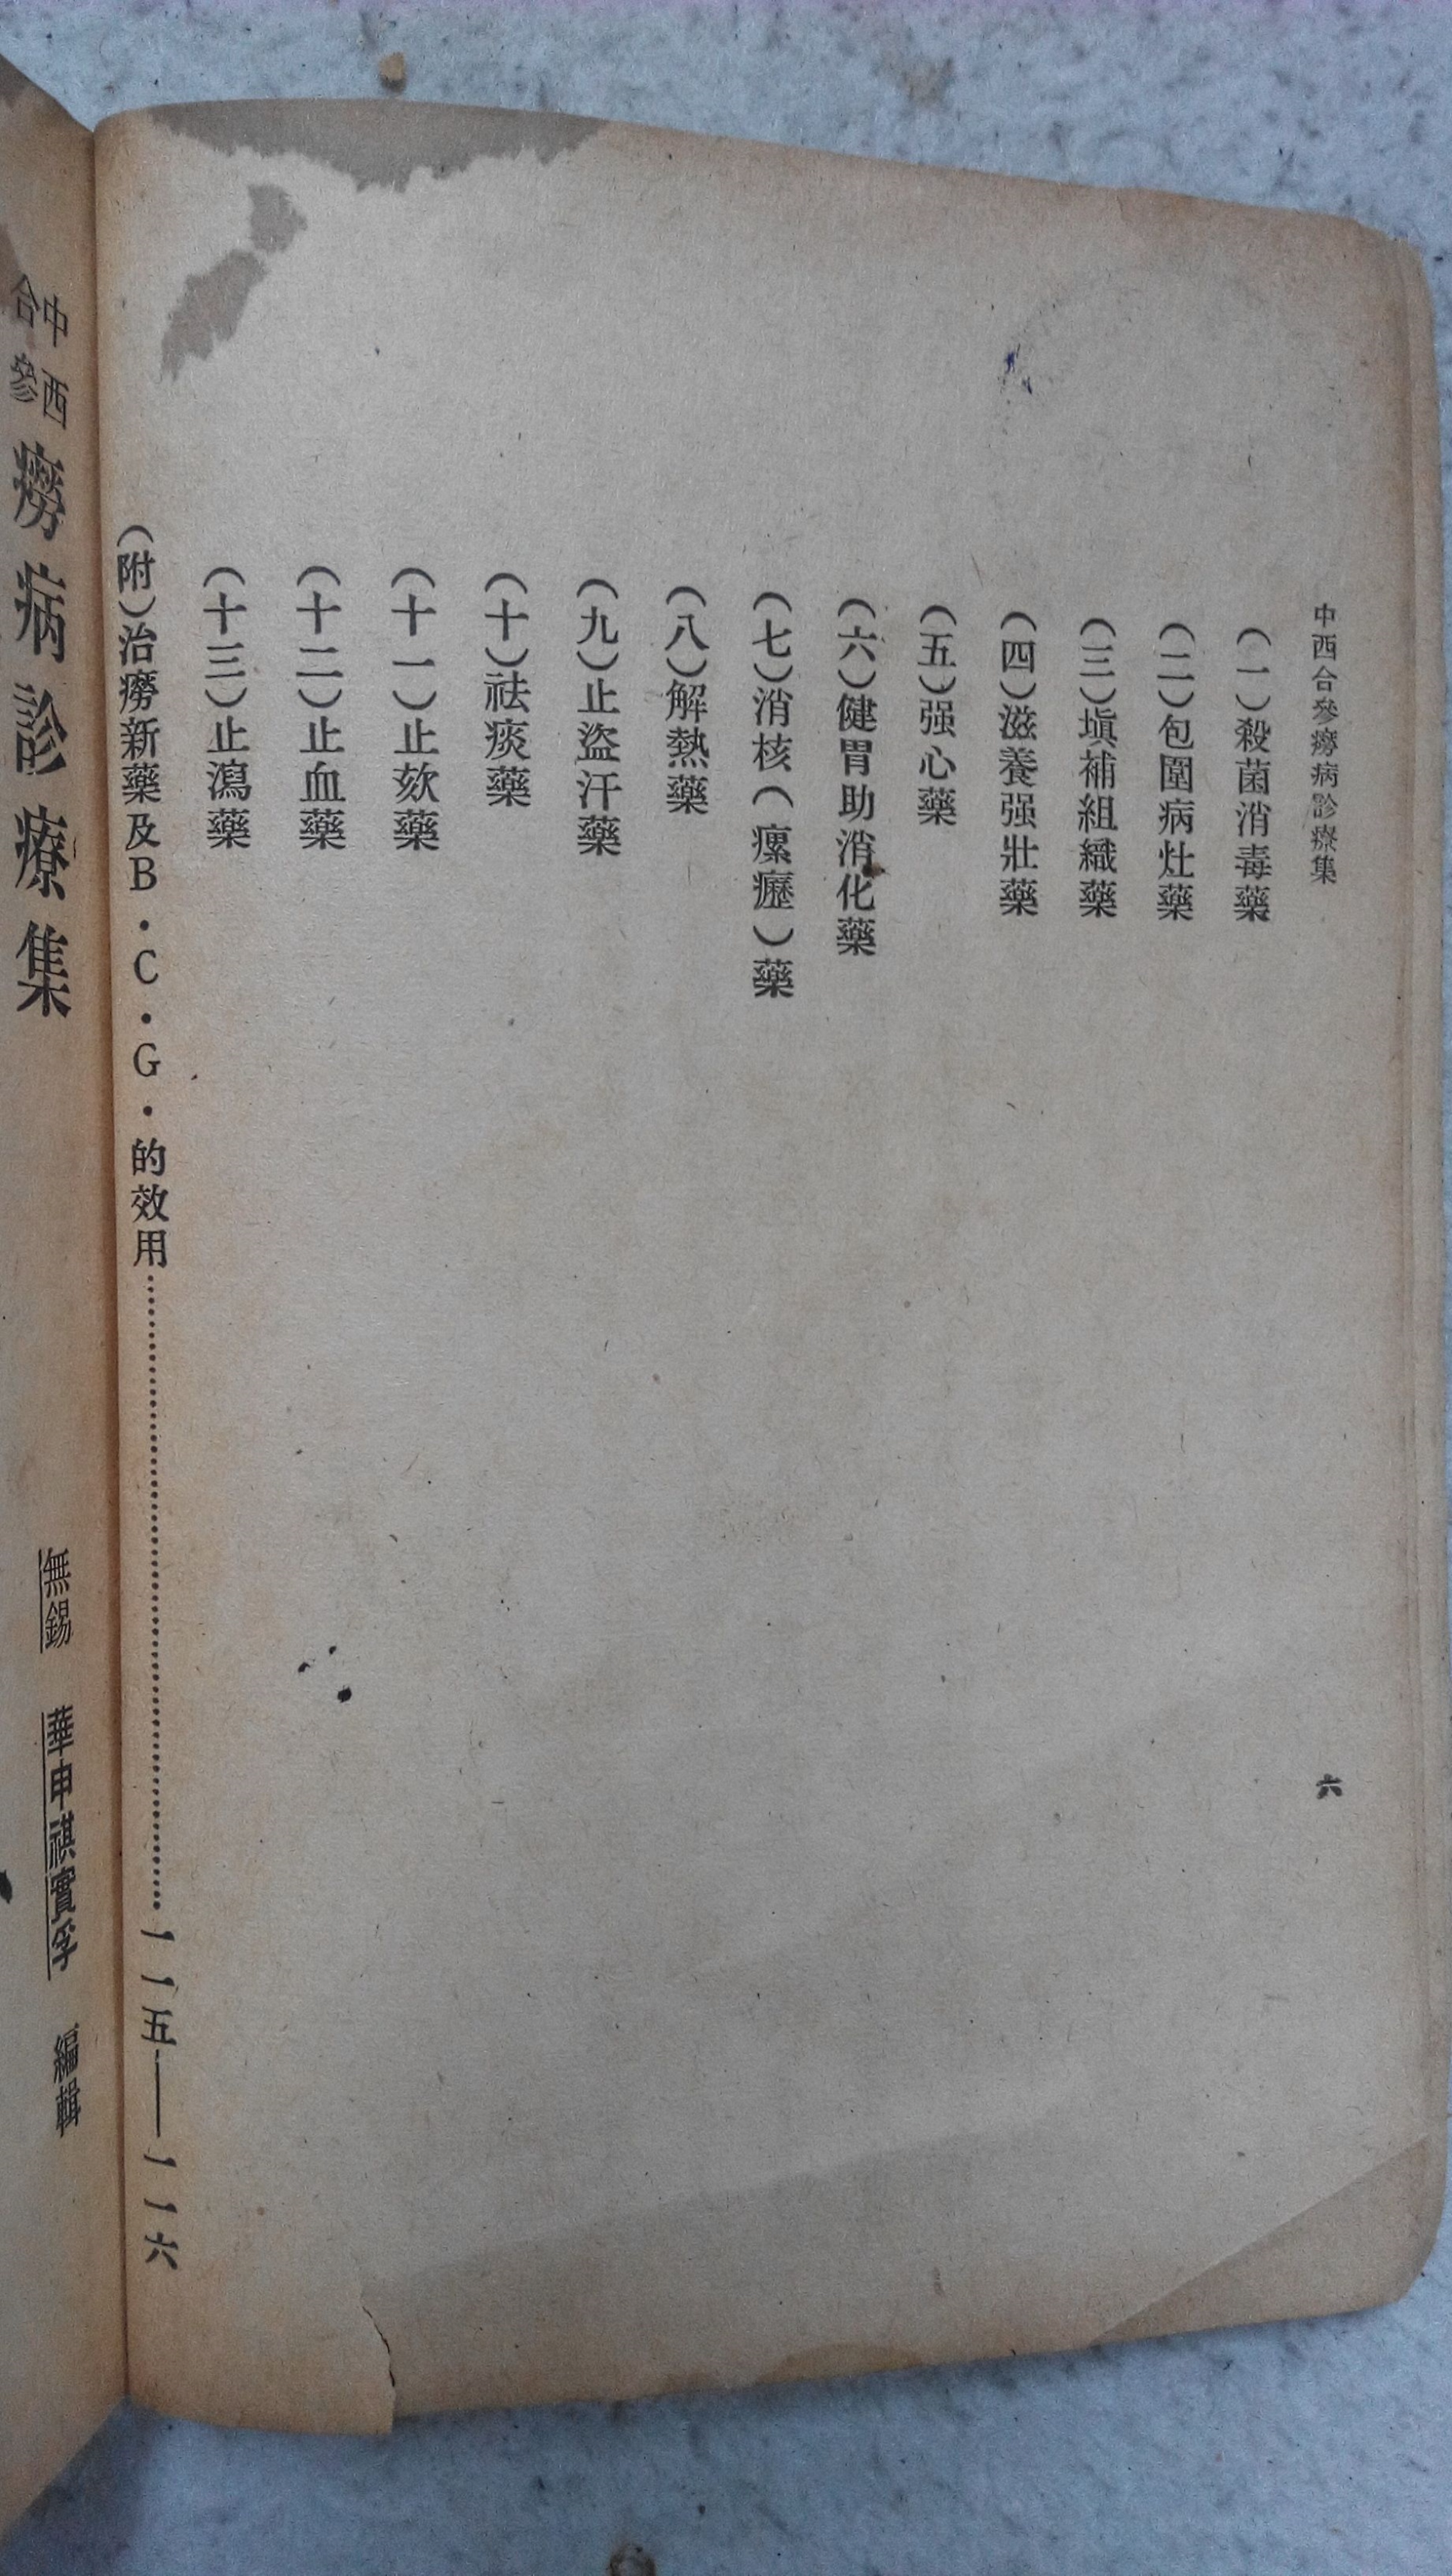 中西合參癆病診療集
六
（一）殺菌消毒藥
（二）包圍病灶藥
（三）塡補組織藥
（四）滋養强壯藥
（五）强心藥
（六）健胃助消化藥
（七）消核（瘰癧）藥
（八）解熱藥
（九）止盜汗藥
（十）祛痰藥
（十一）止欬藥
（十二）止血藥
（十三）止瀉藥
（附）治癆新藥及B・C・G・的效用……一一五——一一六
中西
合參
癆病診療集
無錫 華申祺實孚 編輯